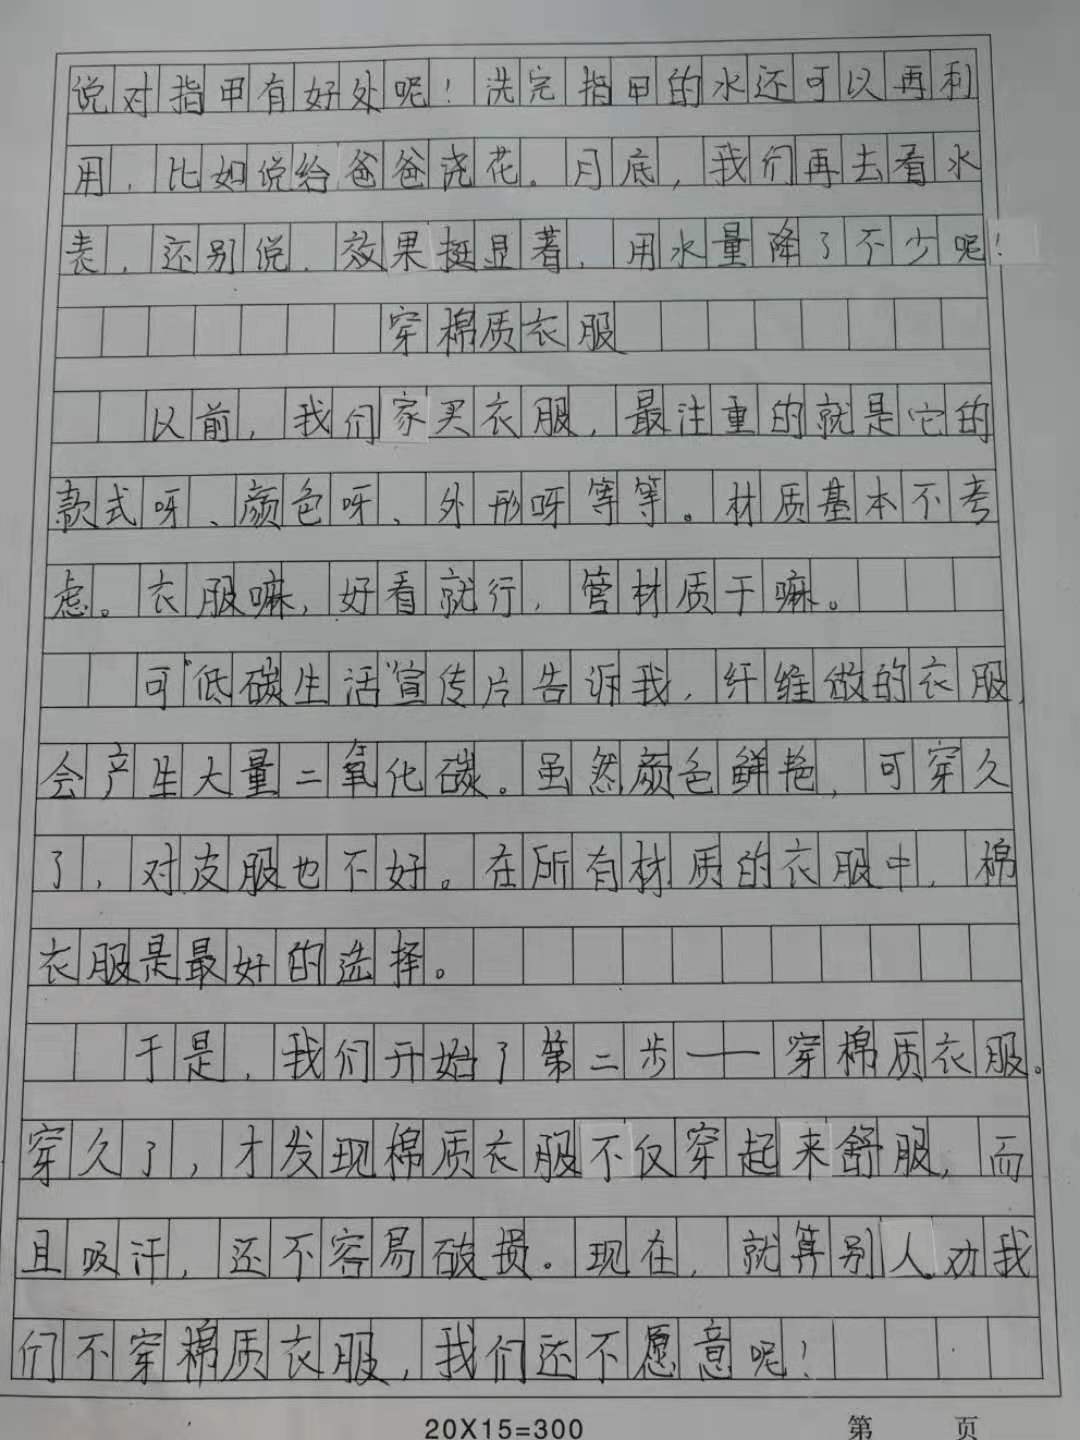 说对指甲有好处呢！洗完指甲的水还可以再利
用，比如说给爸爸浇花。月底，我们再去看水
表，还别说，效果挺显著，用水量降了不少呢！
穿棉质衣服
以前，我们家买衣服，最注重的就是它的
款式呀、颜色呀、外形呀等等。材质基本不考
虑。衣服嘛，好看就行，管材质干嘛。
可“低碳生活”宣传片告诉我，纤维做的衣服，
会产生大量二氧化碳。虽然颜色鲜艳，可穿久
了，对皮服也不好。在所有材质的衣服中，棉
衣服是最好的选择。
于是，我们开始了第二步——穿棉质衣服。
穿久了，才发现棉质衣服不仅穿起来舒服，而
且吸汗，还不容易破损。现在，就算别人劝我
们不穿棉质衣服，我们还不愿意呢！
20X15=300 第 页